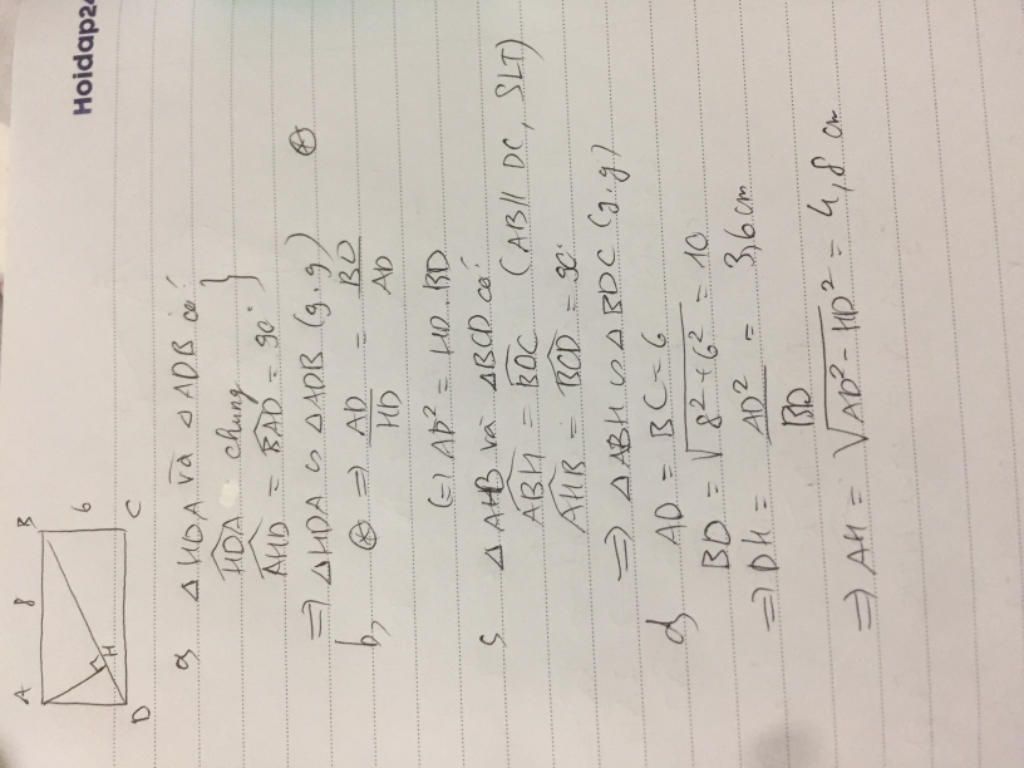 Hoidap24
A 8 B
6
H
D C
a, △HDA và △ADB có:
HDA chung }
AHD = BAD = 90°
=> △HDA ∽ △ADB (g.g) ⊛
b, ⊛ => AD/HD = BD/AD
(=) AD² = HD.BD
c, △AHB và △BCD có:
ABH = BDC (AB // DC, SLT)
AHB = BCD = 90°
=> △ABH ∽ △BDC (g.g)
d, AD = BC = 6
BD = √8²+6² = 10
=> DH = AD²/BD = 3,6 cm
=> AH = √AD² - HD² = 4,8 cm